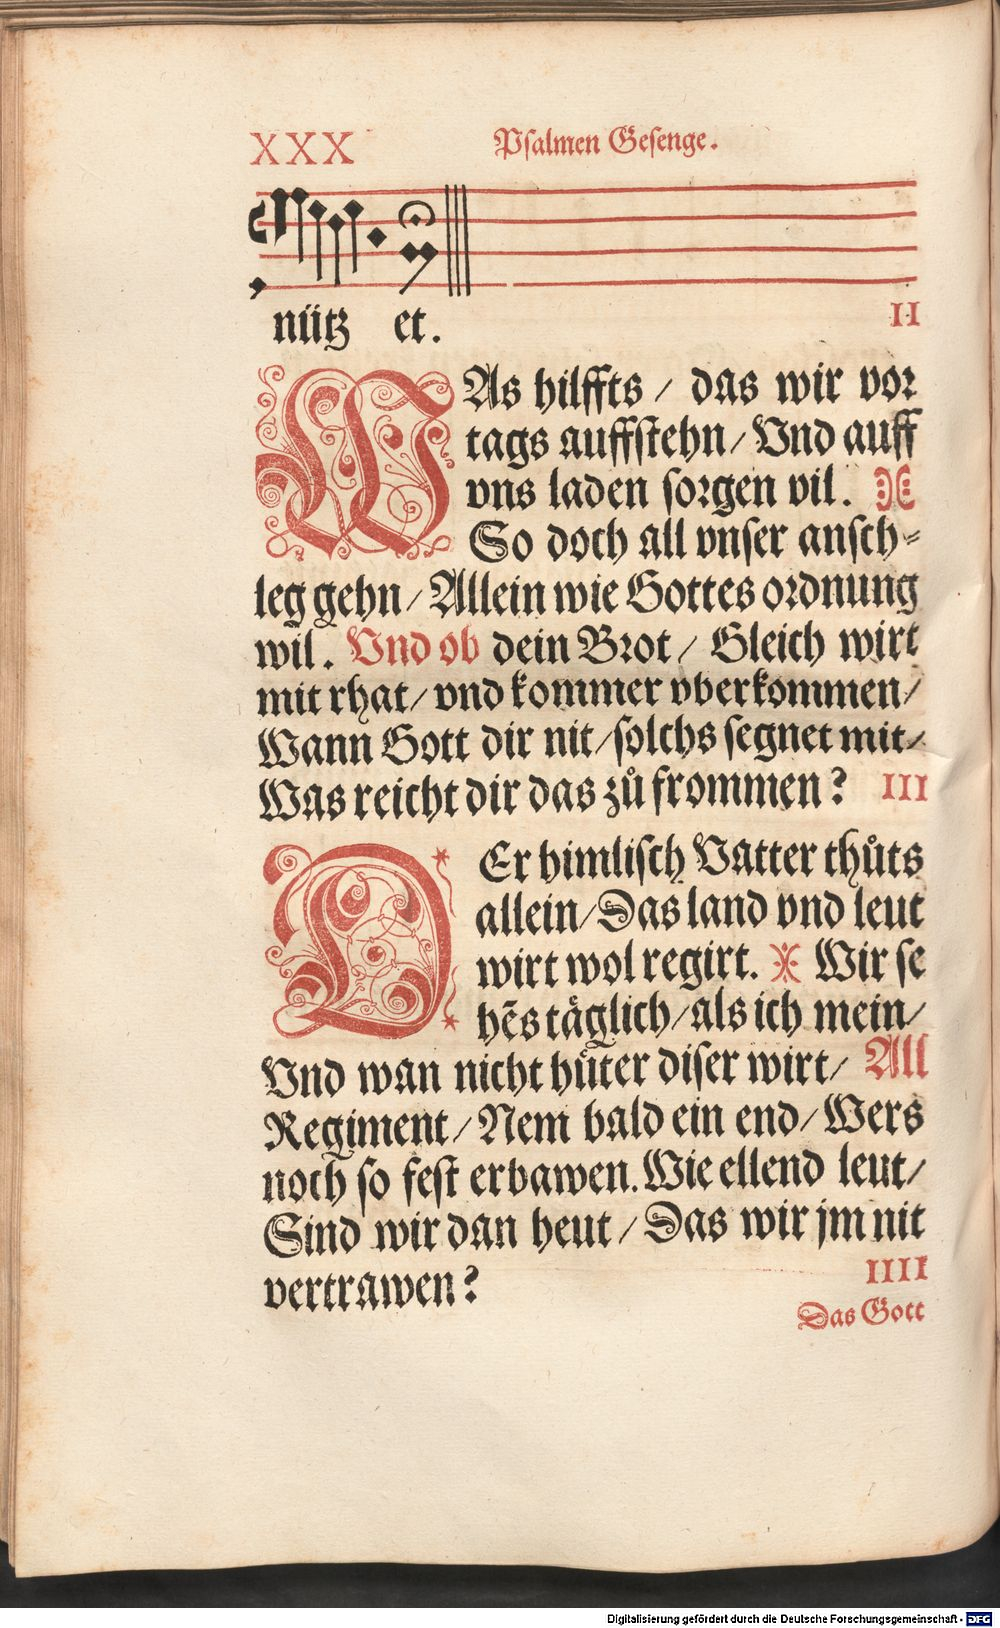 XXX Psalmen Gesenge.
nütz et.
II
WAs hilffts / das wir vor
tags auffstehn / Vnd auff
vns laden sorgen vil.
So doch all vnser ansch-
leg gehn / Allein wie Gottes ordnung
wil. Vnd ob dein Brot / Gleich wirt
mit rhat / vnd kommer vberkommen /
Wann Gott dir nit / solchs segnet mit /
Was reicht dir das zů frommen? III
DEr himlisch Vatter thůts
allein / Das land vnd leut
wirt wol regirt. Wir se
hẽs täglich / als ich mein /
Vnd wan nicht hůter diser wirt / All
Regiment / Nem bald ein end / Wers
noch so fest erbawen. Wie ellend leut /
Sind wir dan heut / Das wir jm nit
vertrawen? IIII
Das Gott
Digitalisierung gefördert durch die Deutsche Forschungsgemeinschaft - DFG